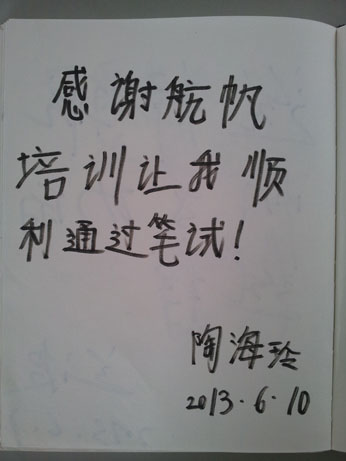 感谢航帆
培训让我顺
利通过笔试！
陶海玲
2013.6.10